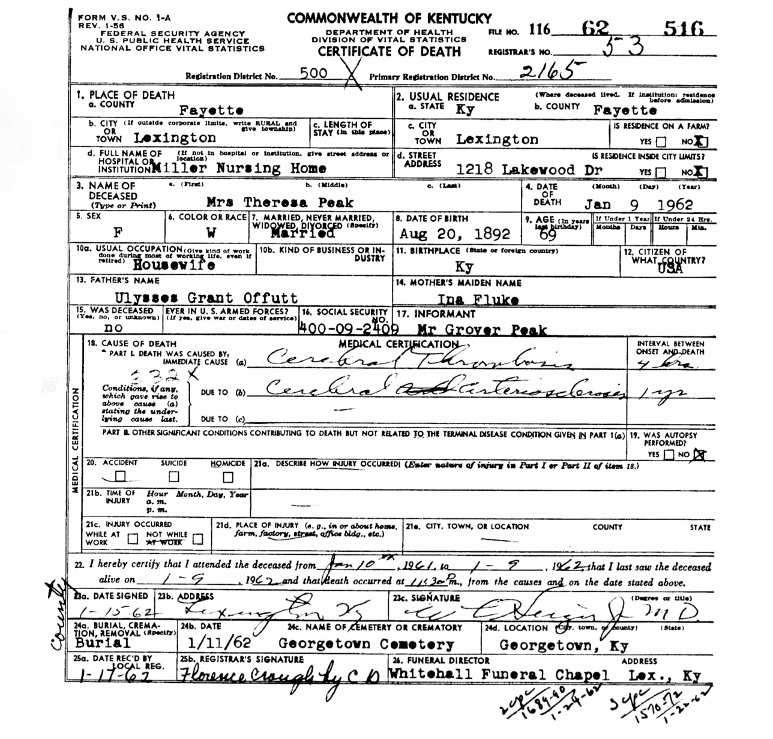 FORM V.S. NO. 1-A
REV. 1-56
FEDERAL SECURITY AGENCY
U. S. PUBLIC HEALTH SERVICE
NATIONAL OFFICE VITAL STATISTICS
COMMONWEALTH OF KENTUCKY
DEPARTMENT OF HEALTH
DIVISION OF VITAL STATISTICS
CERTIFICATE OF DEATH
FILE NO. 116 62 516
REGISTRAR'S NO. 53
Registration District No. 500 X Primary Registration District No. 2165
1. PLACE OF DEATH
a. COUNTY
Fayette
2. USUAL RESIDENCE (Where deceased lived. If institution: residence before admission)
a. STATE Ky b. COUNTY Fayette
b. CITY (If outside corporate limits, write RURAL and give township)
OR
TOWN Lexington
c. LENGTH OF STAY (in this place)
c. CITY
OR
TOWN Lexington
IS RESIDENCE ON A FARM?
YES NO X
d. FULL NAME OF (If not in hospital or institution, give street address or location)
HOSPITAL OR
INSTITUTION Miller Nursing Home
d. STREET
ADDRESS 1218 Lakewood Dr
IS RESIDENCE INSIDE CITY LIMITS?
YES NO X
3. NAME OF DECEASED
(Type or Print)
a. (First) b. (Middle) c. (Last)
Mrs Theresa Peak
4. DATE OF DEATH
(Month) (Day) (Year)
Jan 9 1962
5. SEX
F
6. COLOR OR RACE
W
7. MARRIED, NEVER MARRIED, WIDOWED, DIVORCED (Specify)
Married
8. DATE OF BIRTH
Aug 20, 1892
9. AGE (In years last birthday)
69
If Under 1 Year If Under 24 Hrs.
Months Days Hours Min.
10a. USUAL OCCUPATION (Give kind of work done during most of working life, even if retired)
Housewife
10b. KIND OF BUSINESS OR INDUSTRY
11. BIRTHPLACE (State or foreign country)
Ky
12. CITIZEN OF WHAT COUNTRY?
USA
13. FATHER'S NAME
Ulysses Grant Offutt
14. MOTHER'S MAIDEN NAME
Ina Fluke
15. WAS DECEASED EVER IN U. S. ARMED FORCES?
(Yes, no, or unknown) (If yes, give war or dates of service)
no
16. SOCIAL SECURITY NO.
400-09-2409
17. INFORMANT
Mr Grover Peak
MEDICAL CERTIFICATION
18. CAUSE OF DEATH
PART I. DEATH WAS CAUSED BY:
IMMEDIATE CAUSE (a) Cerebral Thrombosis
INTERVAL BETWEEN ONSET AND DEATH
4 hrs
332X
Conditions, if any, which gave rise to above cause (a) stating the underlying cause last.
DUE TO (b) Cerebral arteriosclerosis 1 yr
DUE TO (c)
PART II. OTHER SIGNIFICANT CONDITIONS CONTRIBUTING TO DEATH BUT NOT RELATED TO THE TERMINAL DISEASE CONDITION GIVEN IN PART I(a)
19. WAS AUTOPSY PERFORMED?
YES NO X
MEDICAL CERTIFICATION
20. ACCIDENT SUICIDE HOMICIDE
21a. DESCRIBE HOW INJURY OCCURRED (Enter nature of injury in Part I or Part II of item 18.)
21b. TIME OF INJURY
Hour Month, Day, Year
a. m.
p. m.
21c. INJURY OCCURRED
WHILE AT WORK NOT WHILE AT WORK
21d. PLACE OF INJURY (e. g., in or about home, farm, factory, street, office bldg., etc.)
21e. CITY, TOWN, OR LOCATION COUNTY STATE
22. I hereby certify that I attended the deceased from Jan 10, 1961, to 1-9, 1962 that I last saw the deceased
alive on 1-9, 1962 and that death occurred at 11:30 P.m., from the causes and on the date stated above.
23a. DATE SIGNED
1-15-62
23b. ADDRESS
Lexington Ky
23c. SIGNATURE (Degree or title)
M D
County
24a. BURIAL, CREMATION, REMOVAL (Specify)
Burial
24b. DATE
1/11/62
24c. NAME OF CEMETERY OR CREMATORY
Georgetown Cemetery
24d. LOCATION (City, town, or county) (State)
Georgetown, Ky
25a. DATE REC'D BY LOCAL REG.
1-17-62
25b. REGISTRAR'S SIGNATURE
Florence Crough by C D
26. FUNERAL DIRECTOR ADDRESS
Whitehall Funeral Chapel Lex., Ky
2cpc
1689-90
1-24-62
3cpc
1570-72
1-22-62